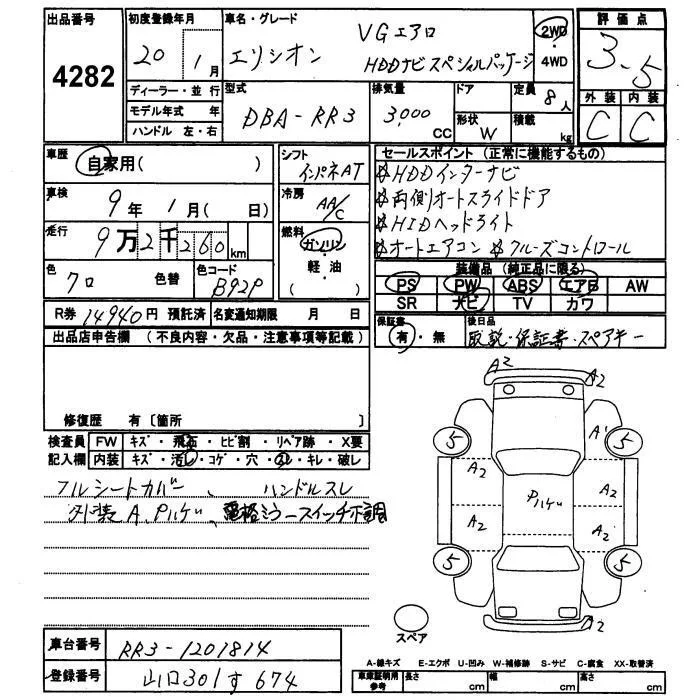 出品番号 初度登録年月 車名・グレード 評価点
4282 20年1月 エリシオン VGエアロ HDDナビスペシャルパッケージ 2WD・4WD 3.5
ディーラー・並行 型式 排気量 ドア 定員 8人 外装 内装
モデル年式 年 DBA-RR3 3,000CC 形状 W 積載 kg C C
ハンドル 左・右
車歴 自家用( ) シフト インパネAT セールスポイント(正常に機能するもの)
車検 9年1月( 日) 冷房 AA/C ☆HDDインターナビ
☆両側オートスライドドア
走行 9万2千260km 燃料 ガソリン・軽油・( ) ☆HIDヘッドライト
☆オートエアコン ☆クルーズコントロール
色 クロ 色替 色コード B92P 装備品(純正品に限る)
PS PW ABS エアB AW
SR ナビ TV カワ
R券 14940円 預託済 名変通知期限 月 日 保証書 有・無 後日品 取説・保証書・スペアキー
出品店申告欄(不良内容・欠品・注意事項等記載)
修復歴 有〔箇所 〕
検査員記入欄 FW キズ・飛石・ヒビ割・リペア跡・X要
内装 キズ・汚レ・コゲ・穴・スレ・キレ・破レ
フルシートカバー、ハンドルスレ
外装A、Pハゲ、電格ミラースイッチ不調
A2 A2
5 A1 5
A2 A2
Pハゲ
A2 A2
5 5
A2
スペア
車台番号 RR3-1201814
登録番号 山口301す674
A-線キズ E-エクボ U-凹み W-補修跡 S-サビ C-腐食 XX-取替済
車庫証明用参考 長さ cm 幅 cm 高さ cm